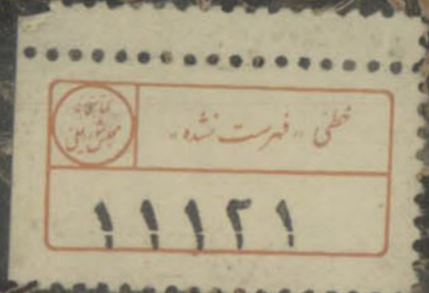 کتابخانه
مجلس شورای ملی
خطی «فهرست نشده»
۱۱۱۲۱